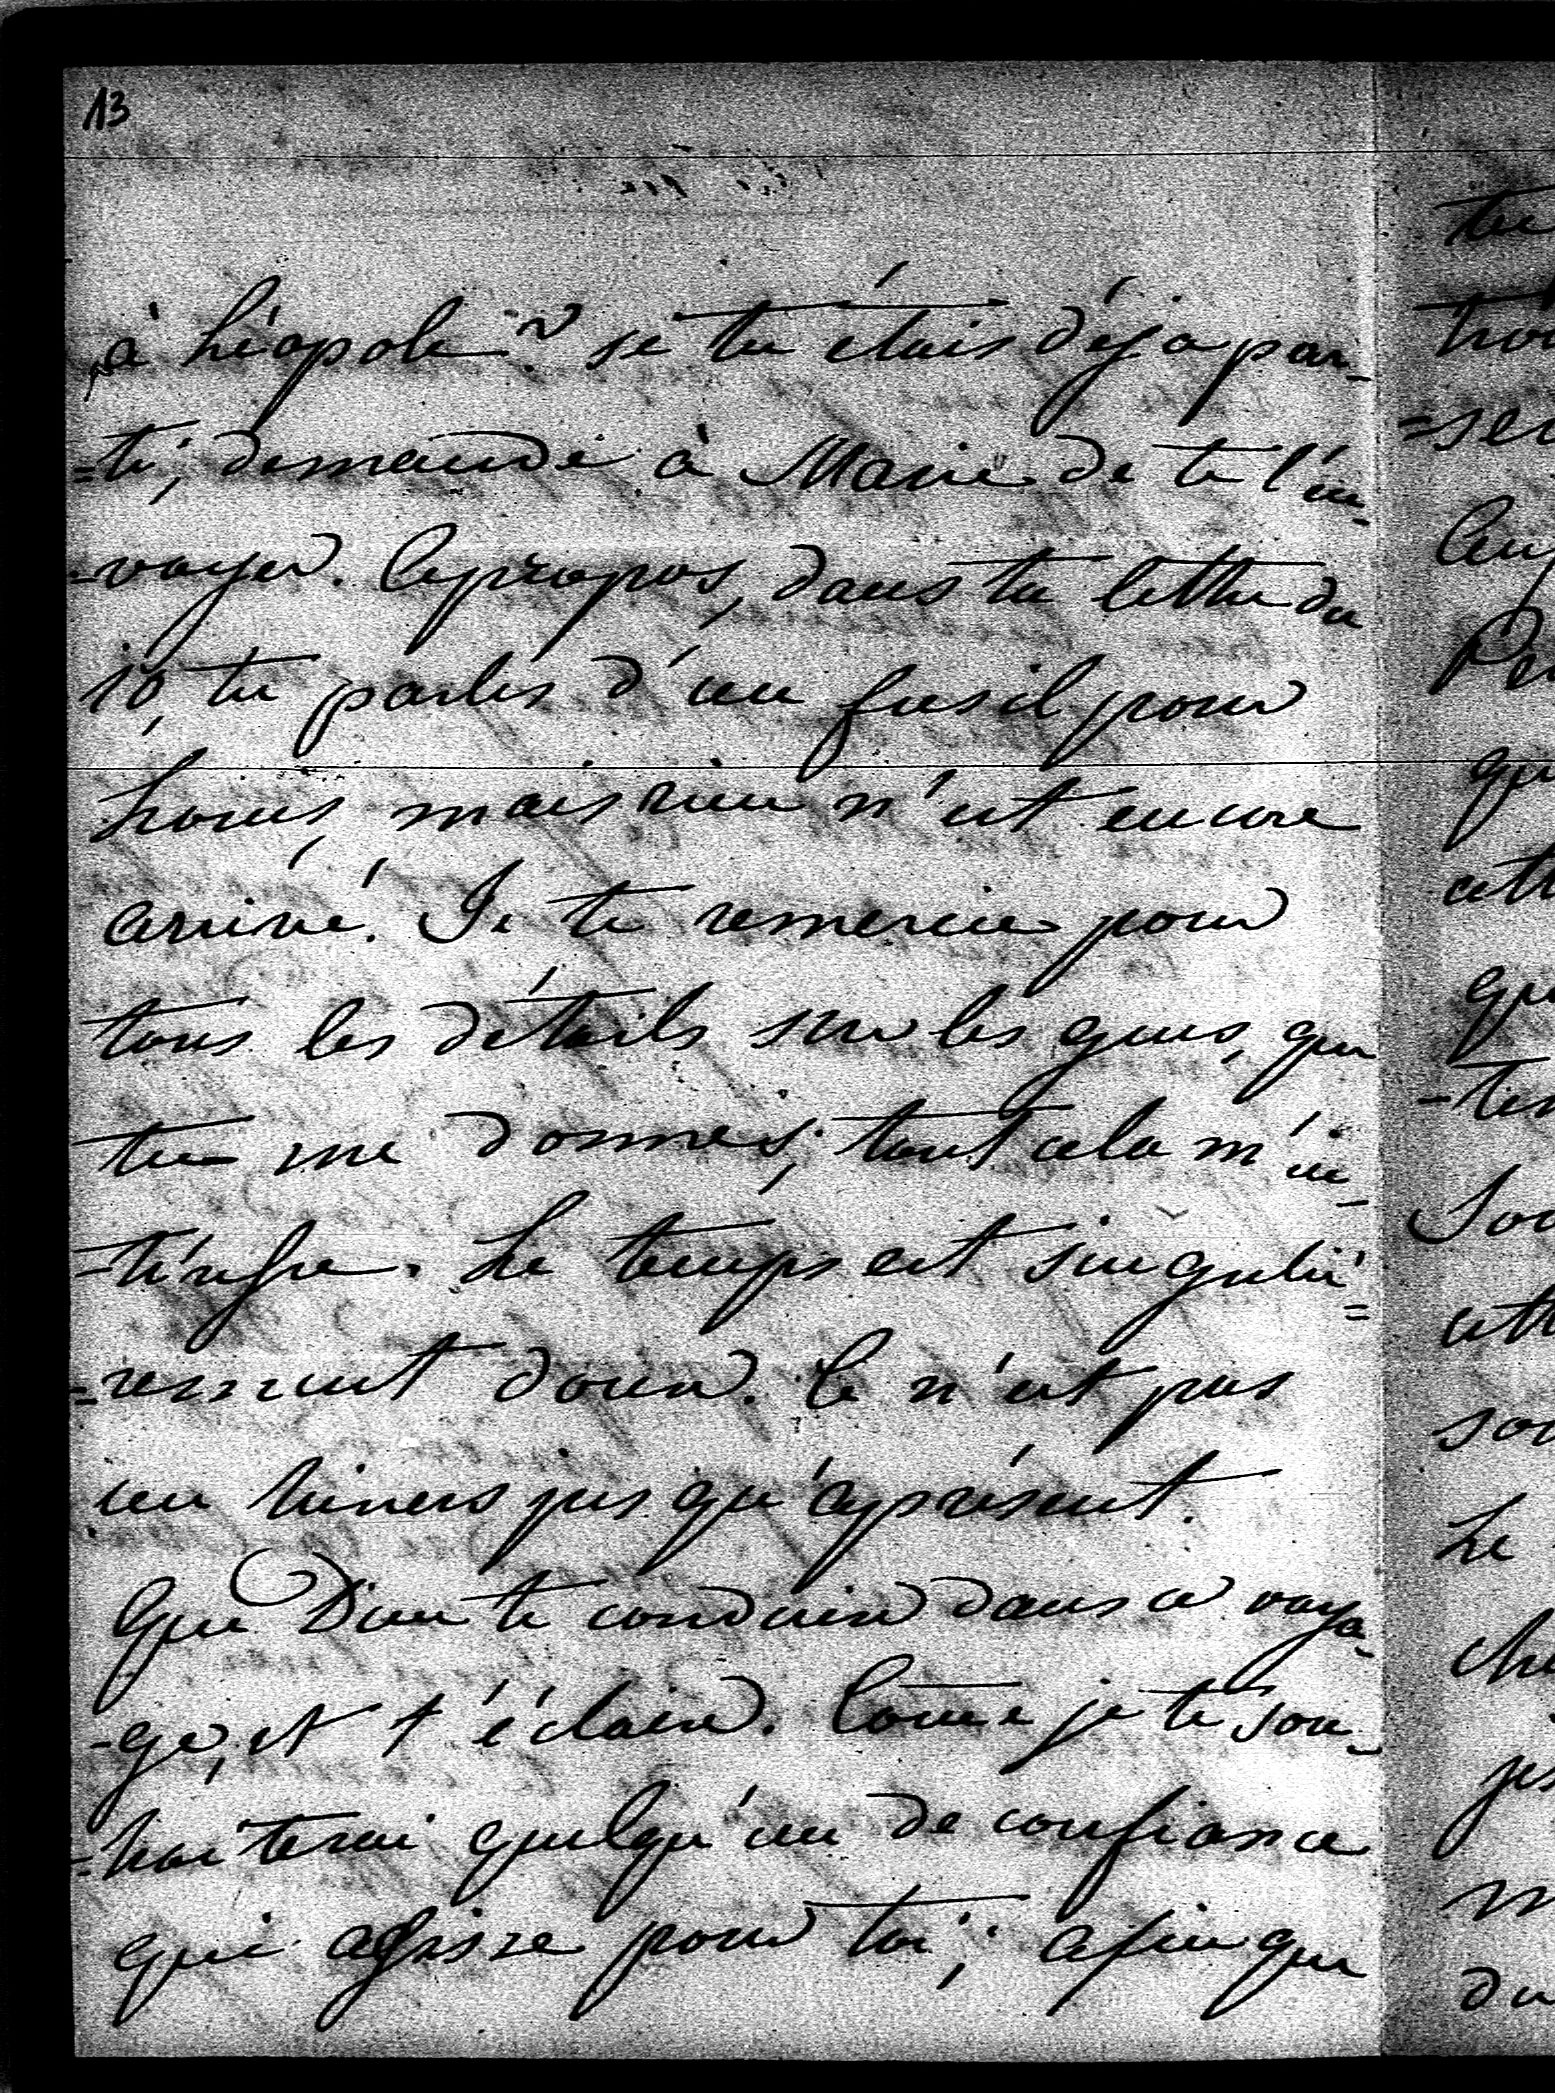 13
à Léopol. si tu étais déjà par-
-ti, demande à Marie de te l'en-
-voyer. Apropos, dans ta lettre du
10, tu parles d'un fusil pour
nous, mais rien n'est encore
arrivé. Je te remercie pour
tous les détails sur les gens, que
tu me donnes; tout cela m'in-
-téresse. Le temps est singuliè-
=rement doux. Ce n'est pas
un hivers jusqu'àprésent.
Que Dieu te conduise dans ce voya-
-ge, et t'éclaire. Come je te sou-
-haiterai quelqu'un de confiance
qui agisse pour toi; afin que